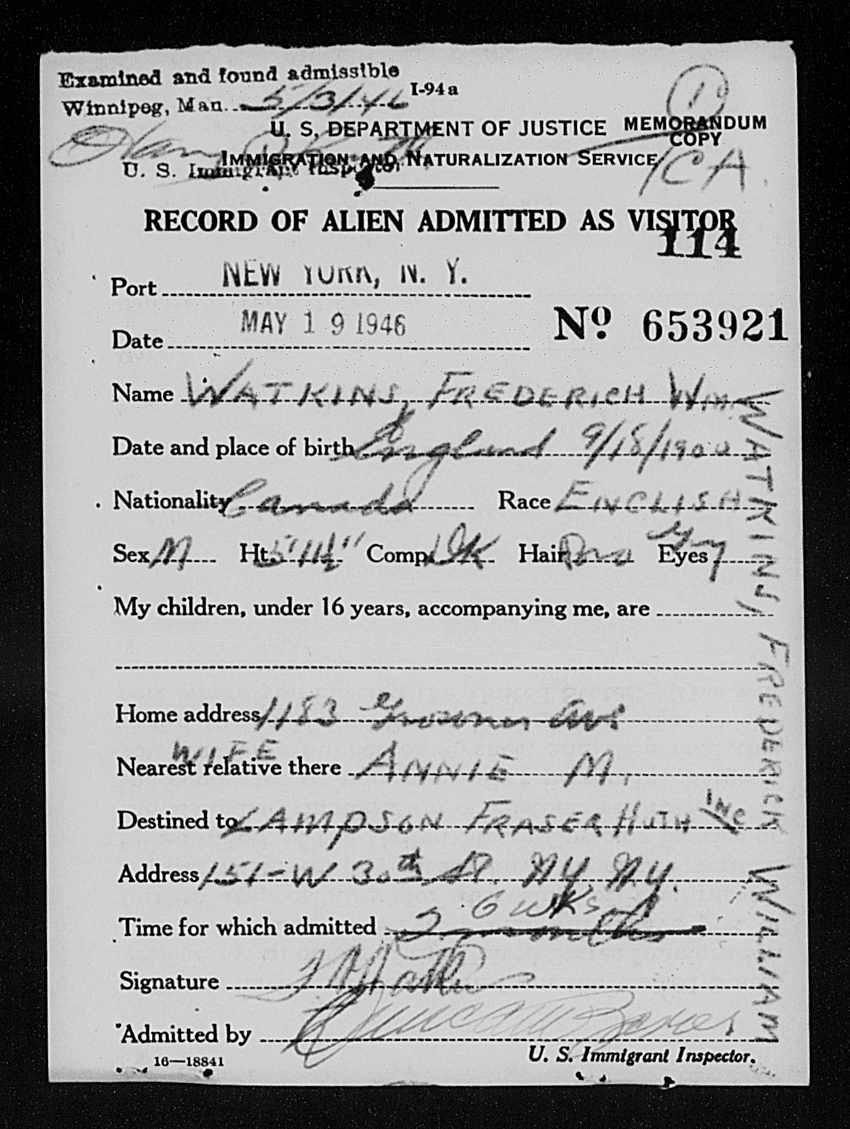 Examined and found admissible
I-94a
Winnipeg, Man. 5/3/46
1
U. S. DEPARTMENT OF JUSTICE MEMORANDUM COPY
IMMIGRATION AND NATURALIZATION SERVICE
U. S. Immigrant Inspector
CA.
RECORD OF ALIEN ADMITTED AS VISITOR
114
Port NEW YORK, N. Y.
Date MAY 19 1946
No 653921
Name WATKINS, FREDERICH WM
Date and place of birth England 9/18/1900
Nationality Canada Race ENGLISH
Sex M Ht. 5'11½" Comp. DK Hair Bro Eyes Gry
My children, under 16 years, accompanying me, are
Home address 1183 Grosvenor Ave
WIFE
Nearest relative there ANNIE M.
Destined to LAMPSON FRASER HUTH INC
Address 151-W 30th St. N.Y. N.Y.
6 wks
Time for which admitted 2 months
Signature F W Watkins
Admitted by
16—18841
U. S. Immigrant Inspector.
WATKINS, FREDERICK WILLIAM